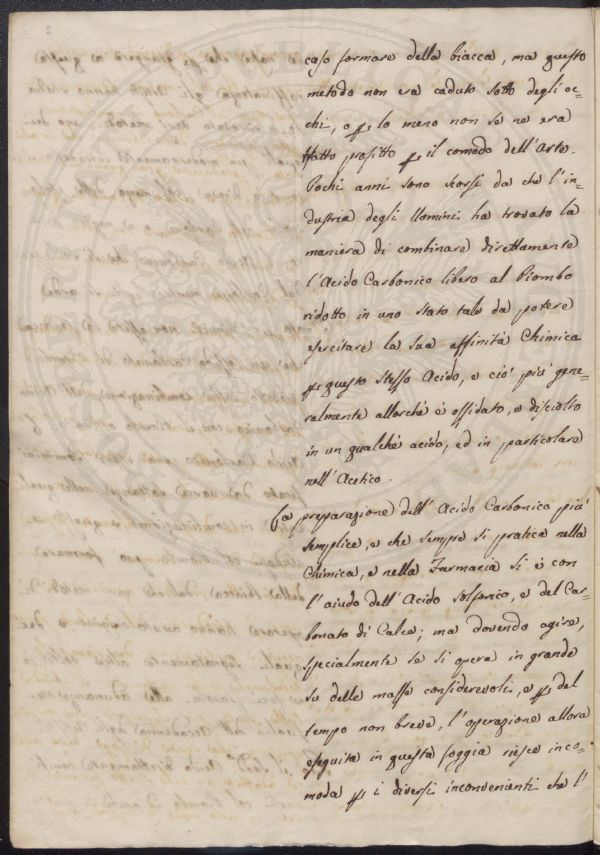 caso formare della biacca, ma questo
metodo non era caduto sotto degli oc=
chi, o per lo meno non se ne era
fatto profitto per il comodo dell'Arte.
Pochi anni sono scorsi da che l'in=
dustria degli Uomini ha trovato la
maniera di combinare direttamente
l'Acido Carbonico libero al Piombo
ridotto in uno stato tale da potere
esercitare la sua affinità Chimica
per questo stesso Acido, e ciò più gene=
ralmente allorchè è ossidato, e disciolto
in un qualche acido, ed in particolare
nell'Acetico.
La preparazione dell'Acido Carbonico più
semplice, e che sempre si pratica nella
Chimica, e nella Farmacia si è con
l'aiuto dell'Acido Solforico, e del Car=
bonato di Calce; ma dovendo agire,
specialmente se si opera in grande
su delle masse considerevoli, e per del
tempo non breve, l'operazione allora
eseguita in questa foggia riesce inco=
moda per i diversi inconvenienti che l'